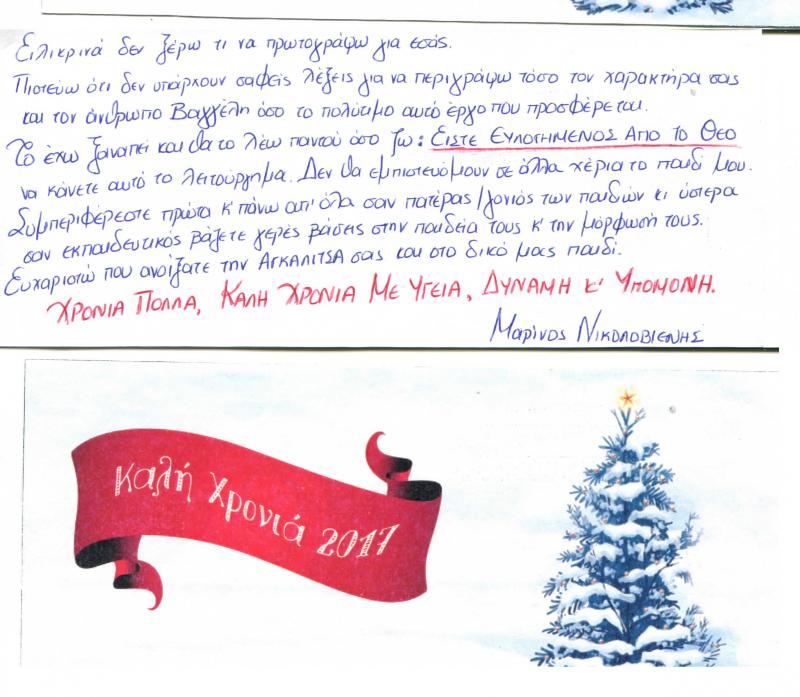 Ειλικρινά δεν ξέρω τι να πρωτογράψω για εσάς.
Πιστεύω ότι δεν υπάρχουν σαφείς λέξεις για να περιγράψω τόσο τον χαρακτήρα σας
και τον άνθρωπο Βαγγέλη όσο το πολύτιμο αυτό έργο που προσφέρεται.
Το έχω ξαναπεί και θα το λέω παντού όσο ζω: ΕΙΣΤΕ ΕΥΛΟΓΗΜΕΝΟΣ ΑΠΟ ΤΟ ΘΕΟ
να κάνετε αυτό το λειτούργημα. Δεν θα εμπιστευόμουν σε άλλα χέρια το παιδί μου.
Συμπεριφέρεστε πρώτα κ' πάνω απ' όλα σαν πατέρας/γονιός των παιδιών κι ύστερα
σαν εκπαιδευτικός βάζετε γερές βάσεις στην παιδεία τους κ' την μόρφωσή τους.
Ευχαριστώ που ανοίξατε την ΑΓΚΑΛΙΤΣΑ σας και στο δικό μας παιδί.
ΧΡΟΝΙΑ ΠΟΛΛΑ, ΚΑΛΗ ΧΡΟΝΙΑ ΜΕ ΥΓΕΙΑ, ΔΥΝΑΜΗ κ' ΥΠΟΜΟΝΗ.
Μαρίνος ΝΙΚΟΛΟΒΙΕΝΗΣ
Καλή Χρονιά 2017